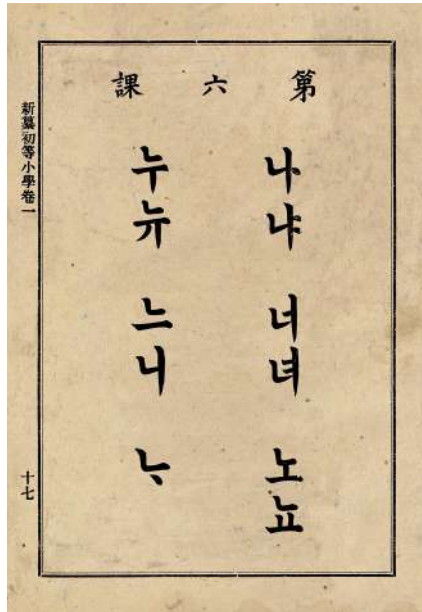 第六課
나냐 너녀 노뇨
누뉴 느니 ᄂᆞ
新纂初等小學卷一
十七